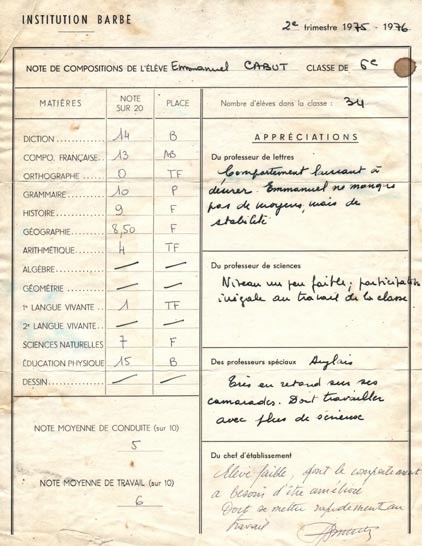 INSTITUTION BARBE
2e trimestre 1975 - 1976
NOTE DE COMPOSITIONS DE L'ÉLÈVE Emmanuel CABUT CLASSE DE 6e
MATIÈRES NOTE SUR 20 PLACE
DICTION 14 B
COMPO. FRANÇAISE 13 AB
ORTHOGRAPHE 0 TF
GRAMMAIRE 10 P
HISTOIRE 9 F
GÉOGRAPHIE 8,50 F
ARITHMÉTIQUE 4 TF
ALGÈBRE — —
GÉOMÉTRIE — —
1e LANGUE VIVANTE 1 TF
2e LANGUE VIVANTE — —
SCIENCES NATURELLES 7 F
ÉDUCATION PHYSIQUE 15 B
DESSIN — —
NOTE MOYENNE DE CONDUITE (sur 10)
5
NOTE MOYENNE DE TRAVAIL (sur 10)
6
Nombre d'élèves dans la classe : 34
APPRÉCIATIONS
Du professeur de lettres
Comportement laissant à
désirer. Emmanuel ne manque
pas de moyens, mais de
stabilité
Du professeur de sciences
Niveau un peu faible, participation
inégale au travail de la classe
Des professeurs spéciaux Anglais
Très en retard sur ses
camarades. Doit travailler
avec plus de sérieux
Du chef d'établissement
Elève faible, dont le comportement
a besoin d'être amélioré
Doit se mettre rapidement au
travail